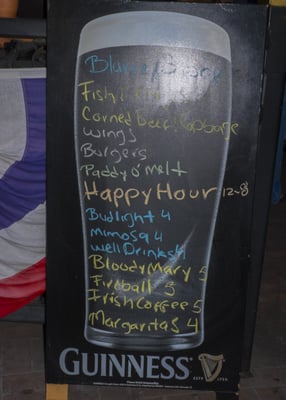 Fish &
Corned Beef & Cabbage
Wings
Burgers
Paddy o' melt
Happy Hour 12-8
Budlight 4
mimosa 4
well Drinks 4
Bloody Mary 5
Fireball 5
Irish Coffee 5
Margaritas 4
GUINNESS